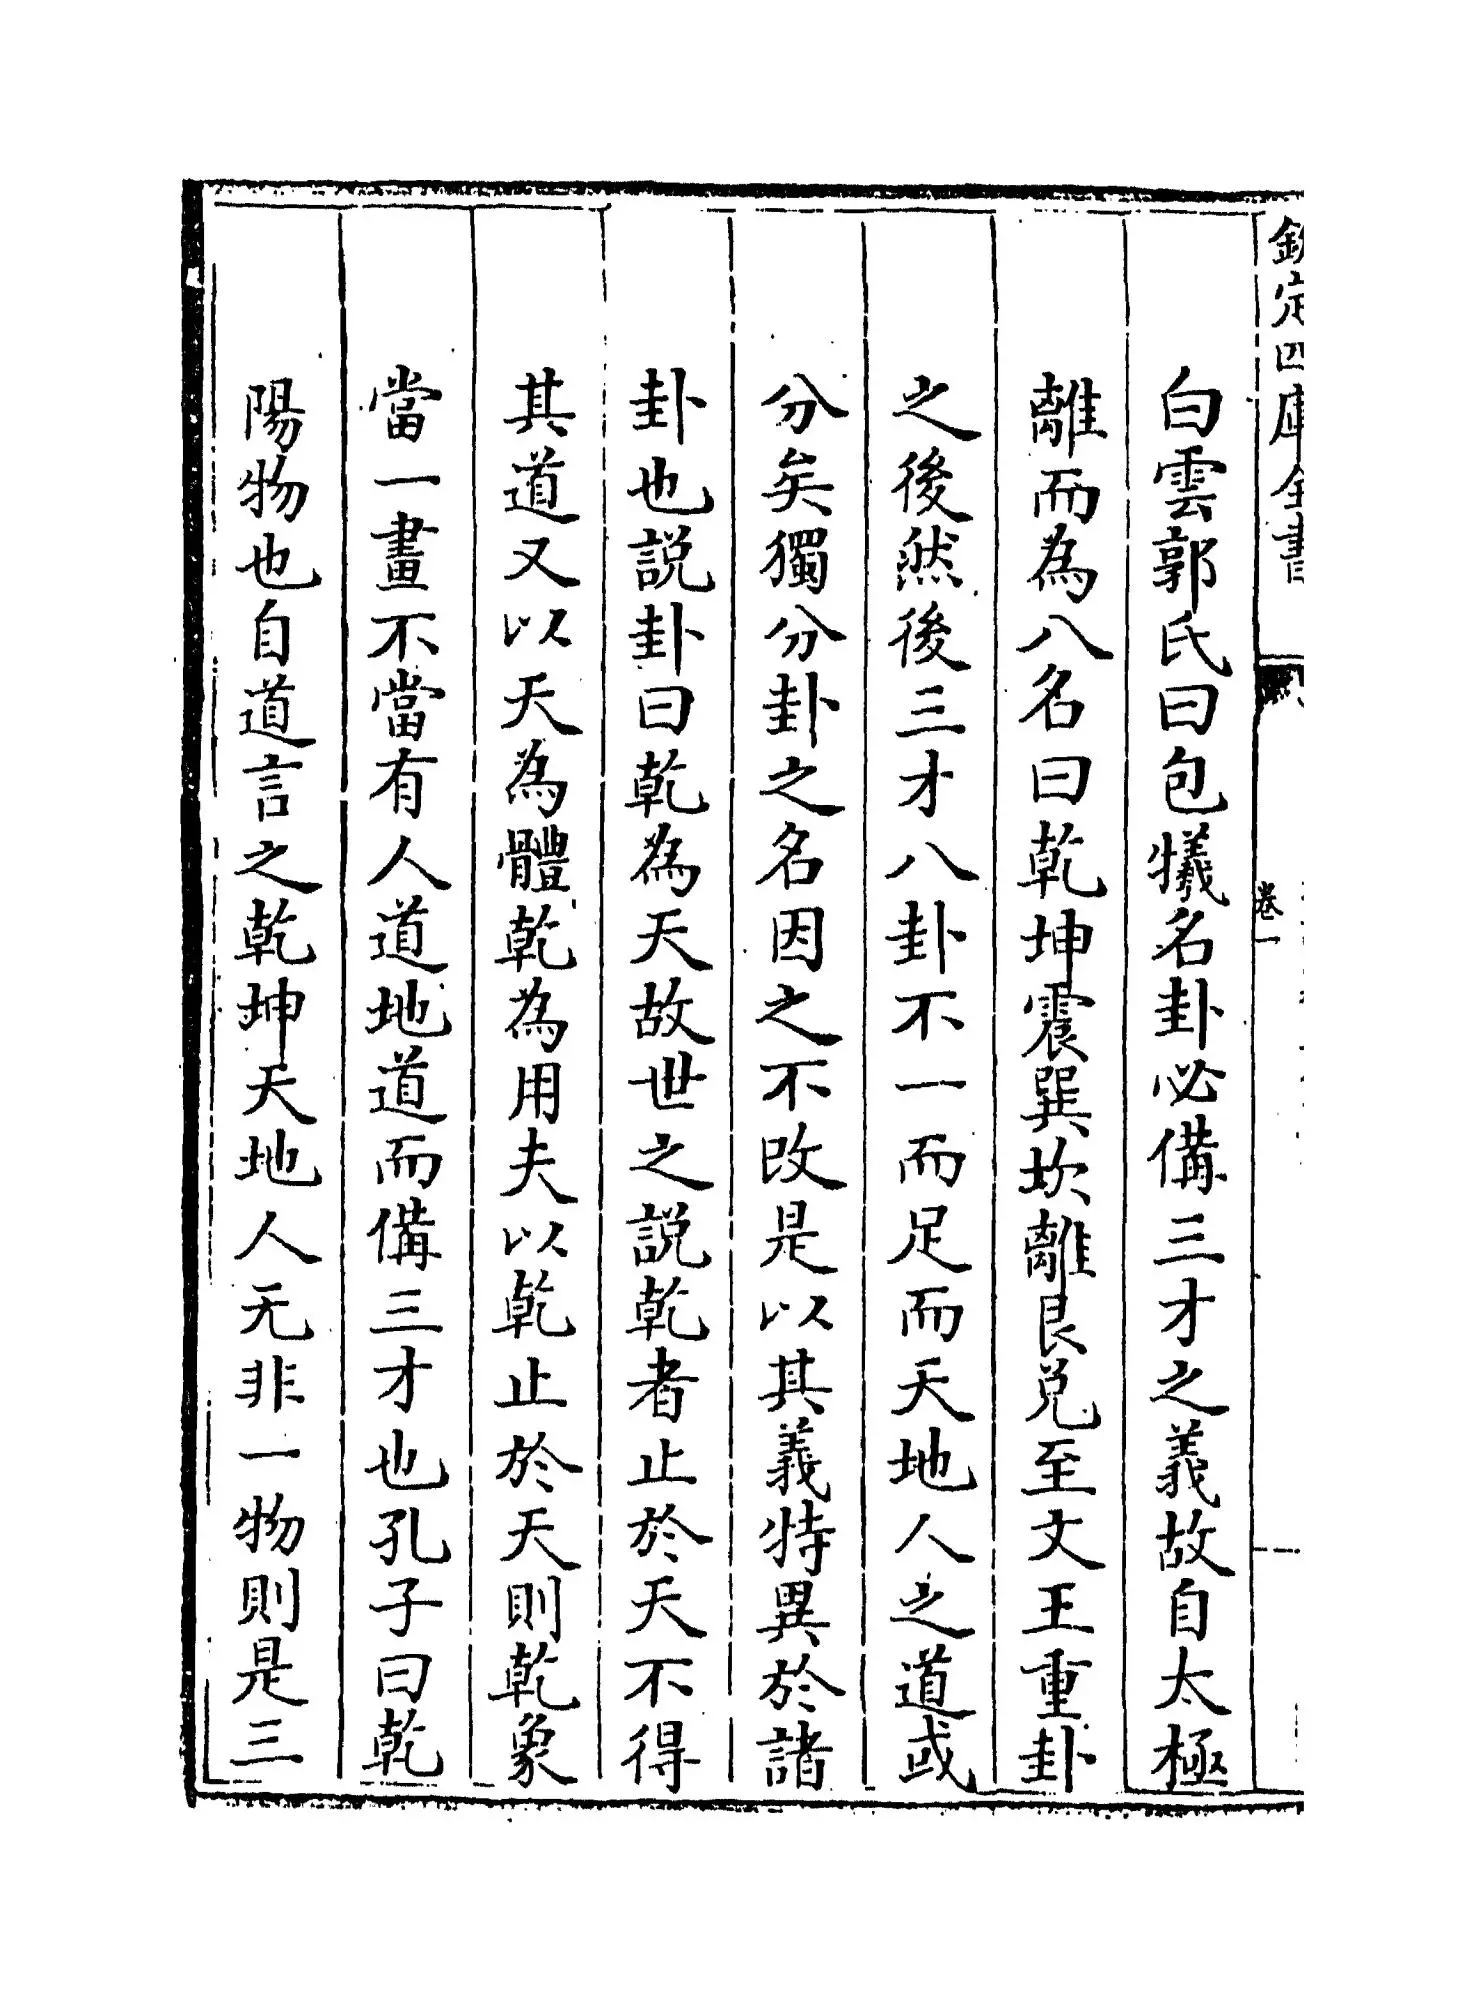 欽定四庫全書
卷一
白雲郭氏曰包犧名卦必備三才之義故自太極
離而為八名曰乾坤震巽坎離艮兌至文王重卦
之後然後三才八卦不一而足而天地人之道或
分矣獨分卦之名因之不改是以其義特異於諸
卦也説卦曰乾為天故世之説乾者止於天不得
其道又以天為體乾為用夫以乾止於天則乾象
當一畫不當有人道地道而備三才也孔子曰乾
陽物也自道言之乾坤天地人无非一物則是三